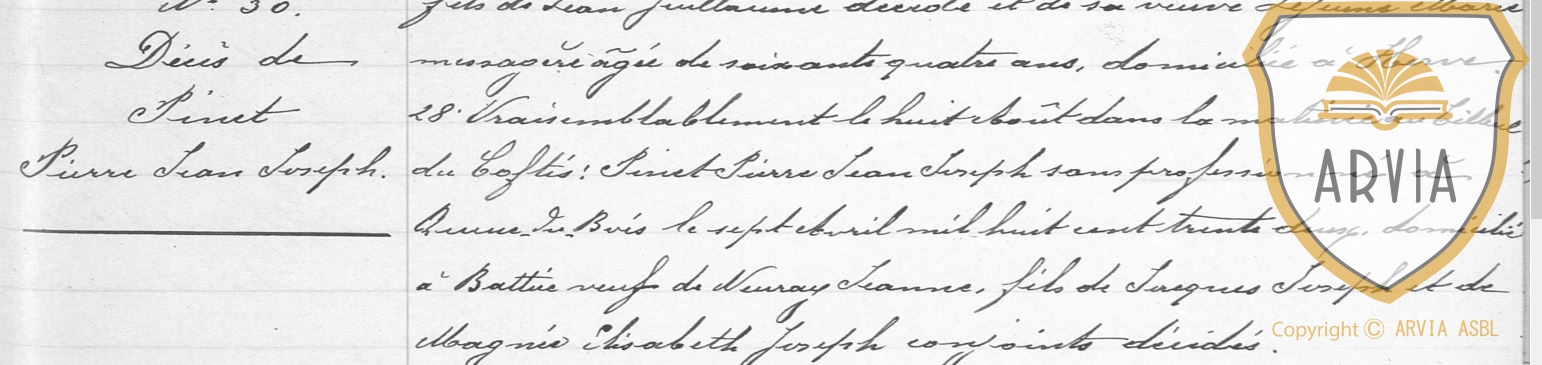 N° 30.
fils de Jean Guillaume décédé et de sa veuve Lejeune Marie
Décès de
messagère âgée de soixante quatre ans, domiciliée à Herve.
Pinet
28° Vraisemblablement le huit Août dans la matinée au Tilleul
Pierre Jean Joseph.
du Coftis: Pinet Pierre Jean Joseph sans profession né à
Queue-du-Bois le sept Avril mil huit cent trente deux, domicilié
à Battice veuf de Neuray Jeanne, fils de Jacques Joseph et de
Magnée Elisabeth Joseph conjoints décédés.
ARVIA
Copyright © ARVIA ASBL